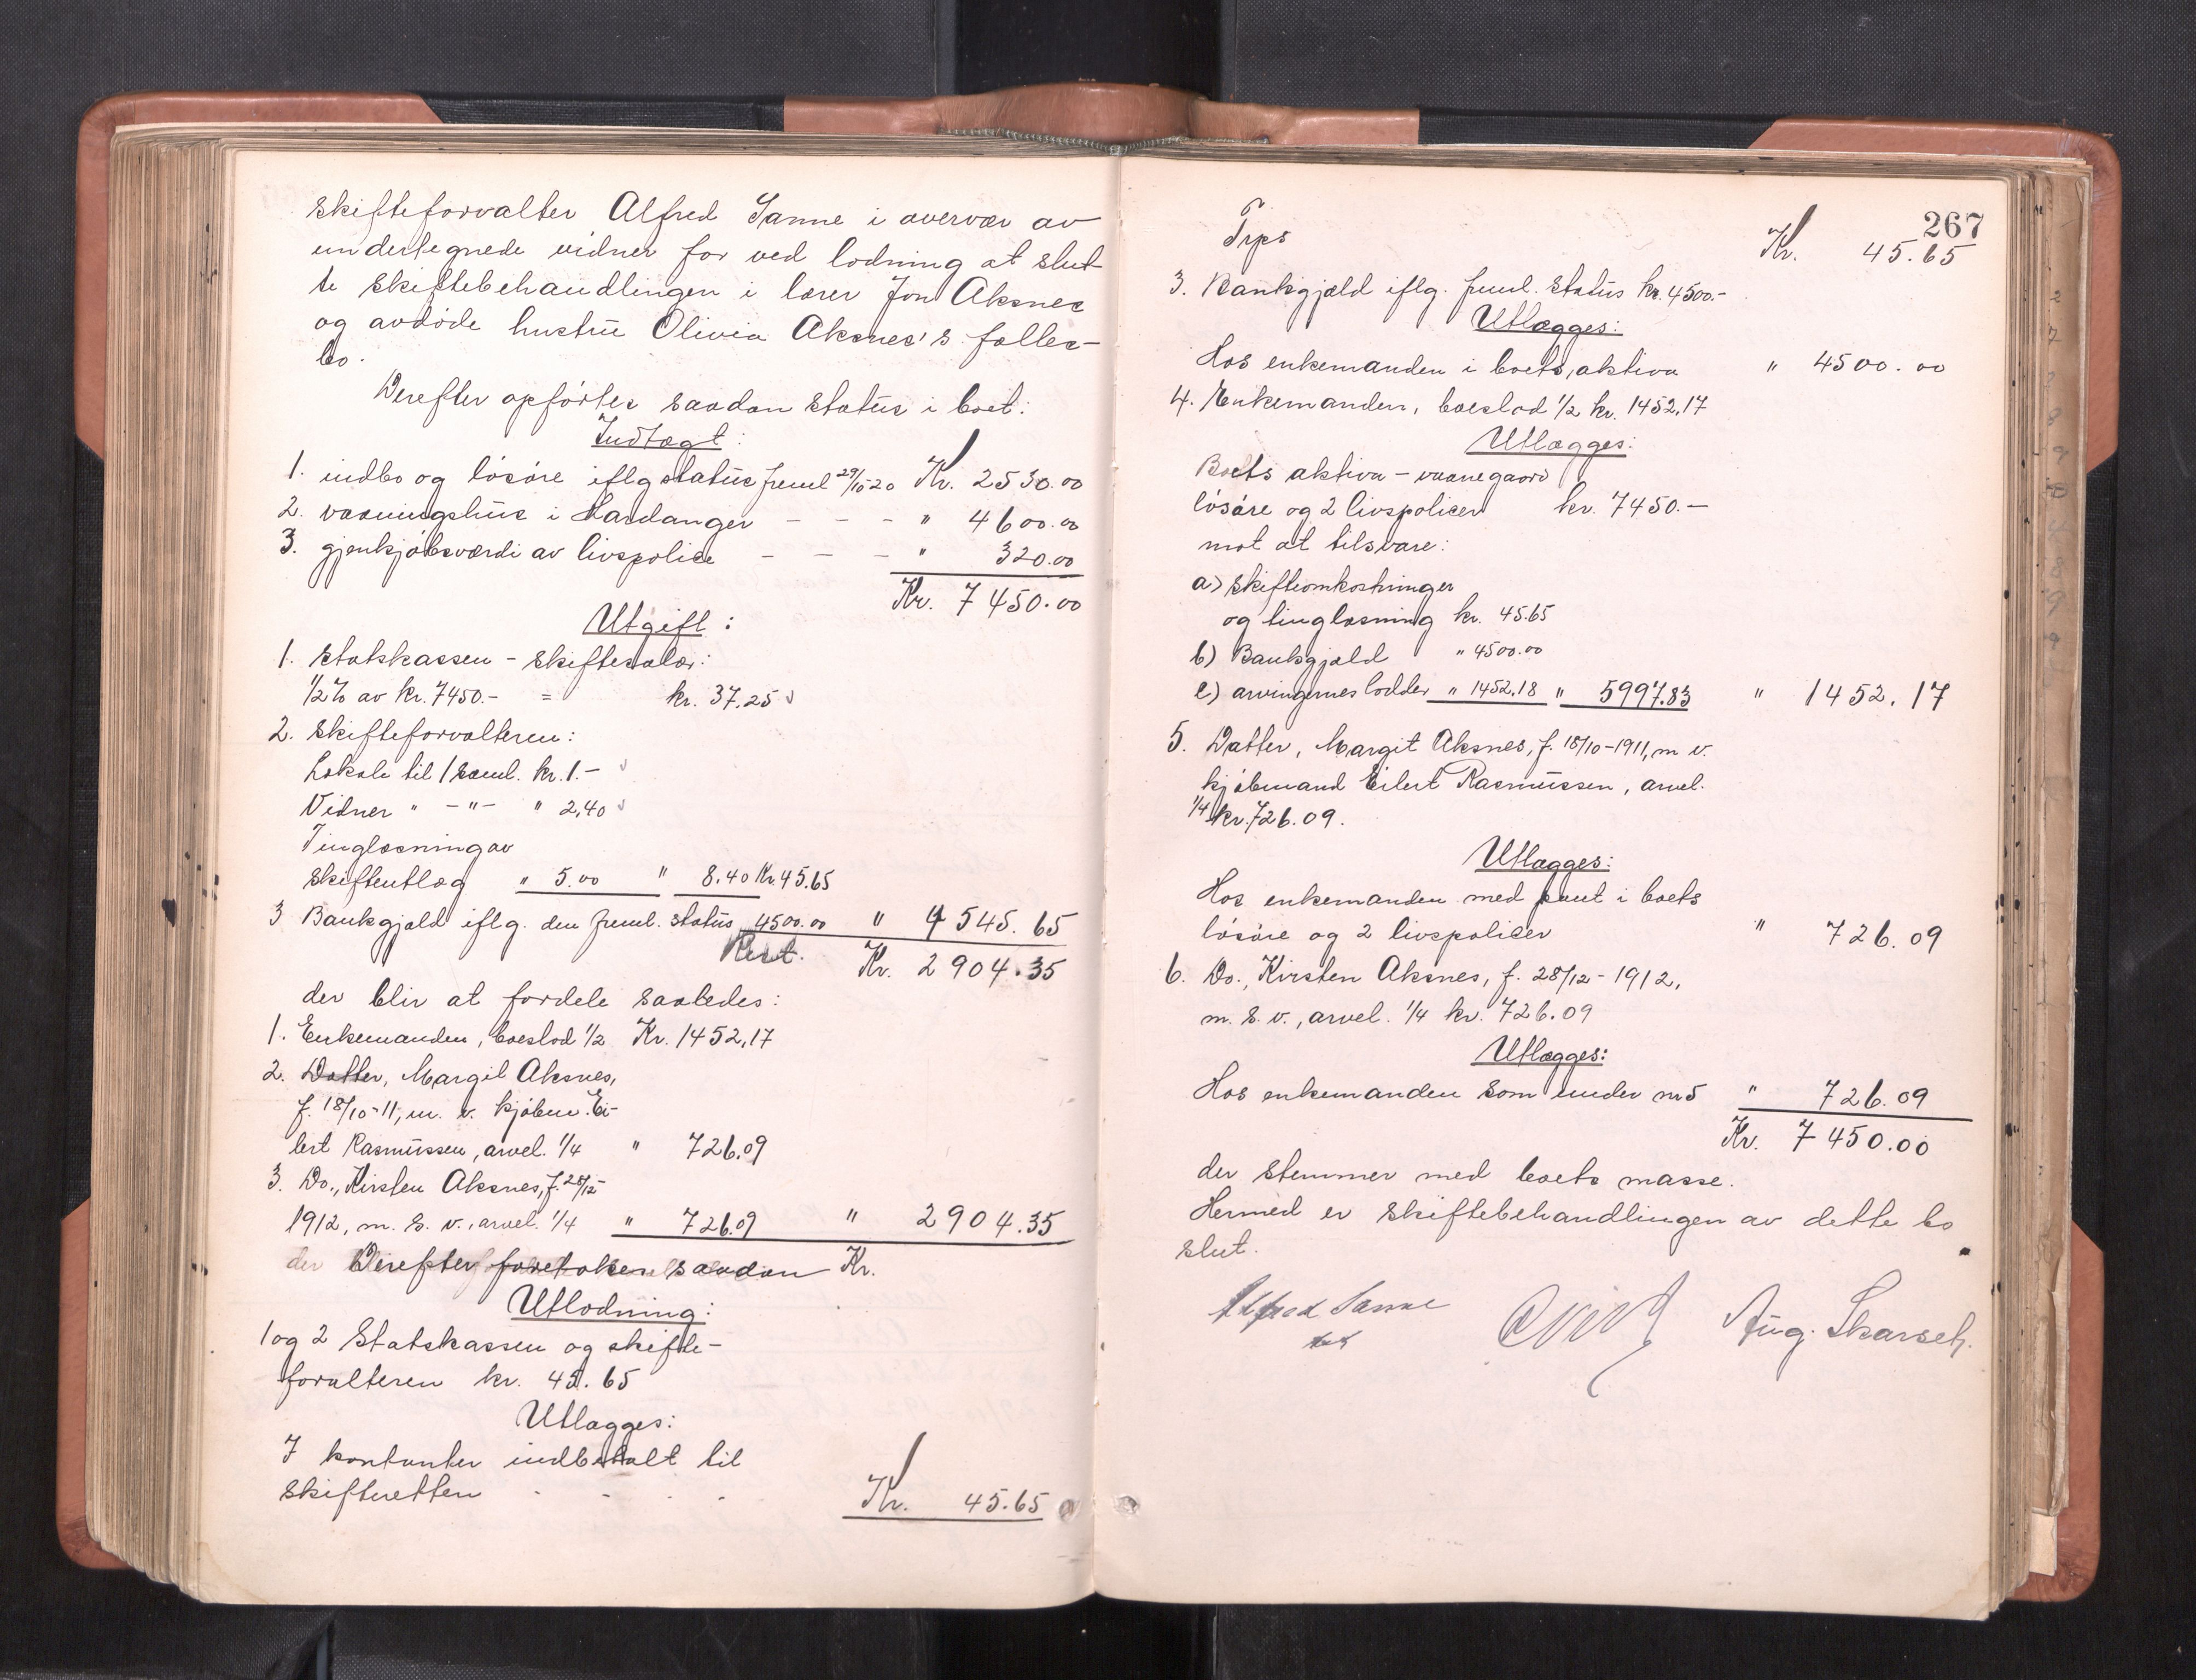 skifteforvalter Alfred Sanne i overvær av
undertegnede vidner for ved lodning at slut-
te skiftebehandlingen i lærer Jon Aksnes
og avdøde hustru Olivia Aksnes's fælles-
bo.
Derefter opførtes saadan status i boet:
Indtægt:
1. indbo og løsøre iflg status freml 29/10 20 Kr. 2530.00
2. vaaningshus i Hardanger - - - " 4600.00
3. gjenkjøbsværdi av livspolice - - - " 320.00
Kr. 7450.00
Utgift:
1. Statskassen - Skiftesalær:
1/2 % av kr. 7450.- = kr. 37.25
2. Skifteforvalteren:
Lokale til 1 saml. kr. 1.-
Vidner " - " - " 2,40
Tinglæsning av
skifteutlæg " 5.00 " 8.40 Kr 45.65
3 Bankgjæld iflg. den freml. status 4500.00 " 4545.65
Rest. Kr. 2904.35
der blir at fordele saaledes:
1. Enkemanden, boeslod 1/2 Kr. 1452,17
2. Datter, Margit Aksnes,
f. 18/10-11, m. v. kjøbm. Ei-
lert Rasmussen, arvel. 1/4 " 726.09
3. Do., Kirsten Aksnes, f. 28/12-
1912, m. s. v., arvel. 1/4 " 726.09 " 2904.35
Derefter foretokes saadan Kr.
Utlodning:
1 og 2 Statskassen og skifte-
forvalteren kr. 45.65
Utlægges:
I kontanter indbetalt til
skifteretten - - - - Kr. 45.65
267
Trps Kr. 45.65
3. Bankgjæld iflg. freml. status kr. 4500.-
Utlægges:
Hos enkemanden i boets aktiva " 4500.00
4. Enkemanden, boeslod 1/2 kr. 1452,17
Utlægges:
Boets aktiva - vaanegaard
løsøre og 2 livspolicer kr. 7450.-
mot at tilsvare:
a) skifteomkostninger
og tinglæsning kr. 45.65
b) Bankgjæld " 4500.00
c) arvingernes lodder " 1452.18 " 5997.83 " 1452.17
5. Datter, Margit Aksnes, f. 18/10-1911, m v.
kjøbmand Eilert Rasmussen, arvel.
1/4 kr. 726.09.
Utlægges:
Hos enkemanden med pant i boets
løsøre og 2 livspolicer " 726.09
6. Do., Kirsten Aksnes, f. 28/12-1912,
m. s. v., arvel. 1/4 kr. 726.09
Utlægges:
Hos enkemanden som under nr 5 " 726.09
Kr. 7450.00
der stemmer med boets masse.
Hermed er skiftebehandlingen av dette bo
slut.
Alfred Sanne
Aug. Skarseth.